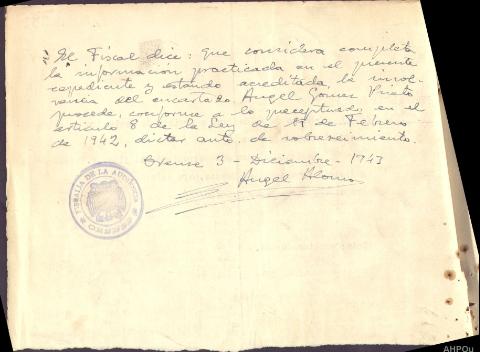 El Fiscal dice: que considera completa
la información practicada en el presente
expediente y estando acreditada la insol-
vencia del encartado, Angel Gomez Prieto
procede, conforme a lo preceptuado en el
artículo 8 de la Ley de 19 de Febrero
de 1942, dictar auto de sobreseimiento.
Orense 3 - Diciembre - 1943
Angel Alonso
FISCALIA DE LA AUDIENCIA
ORENSE
AHPOu